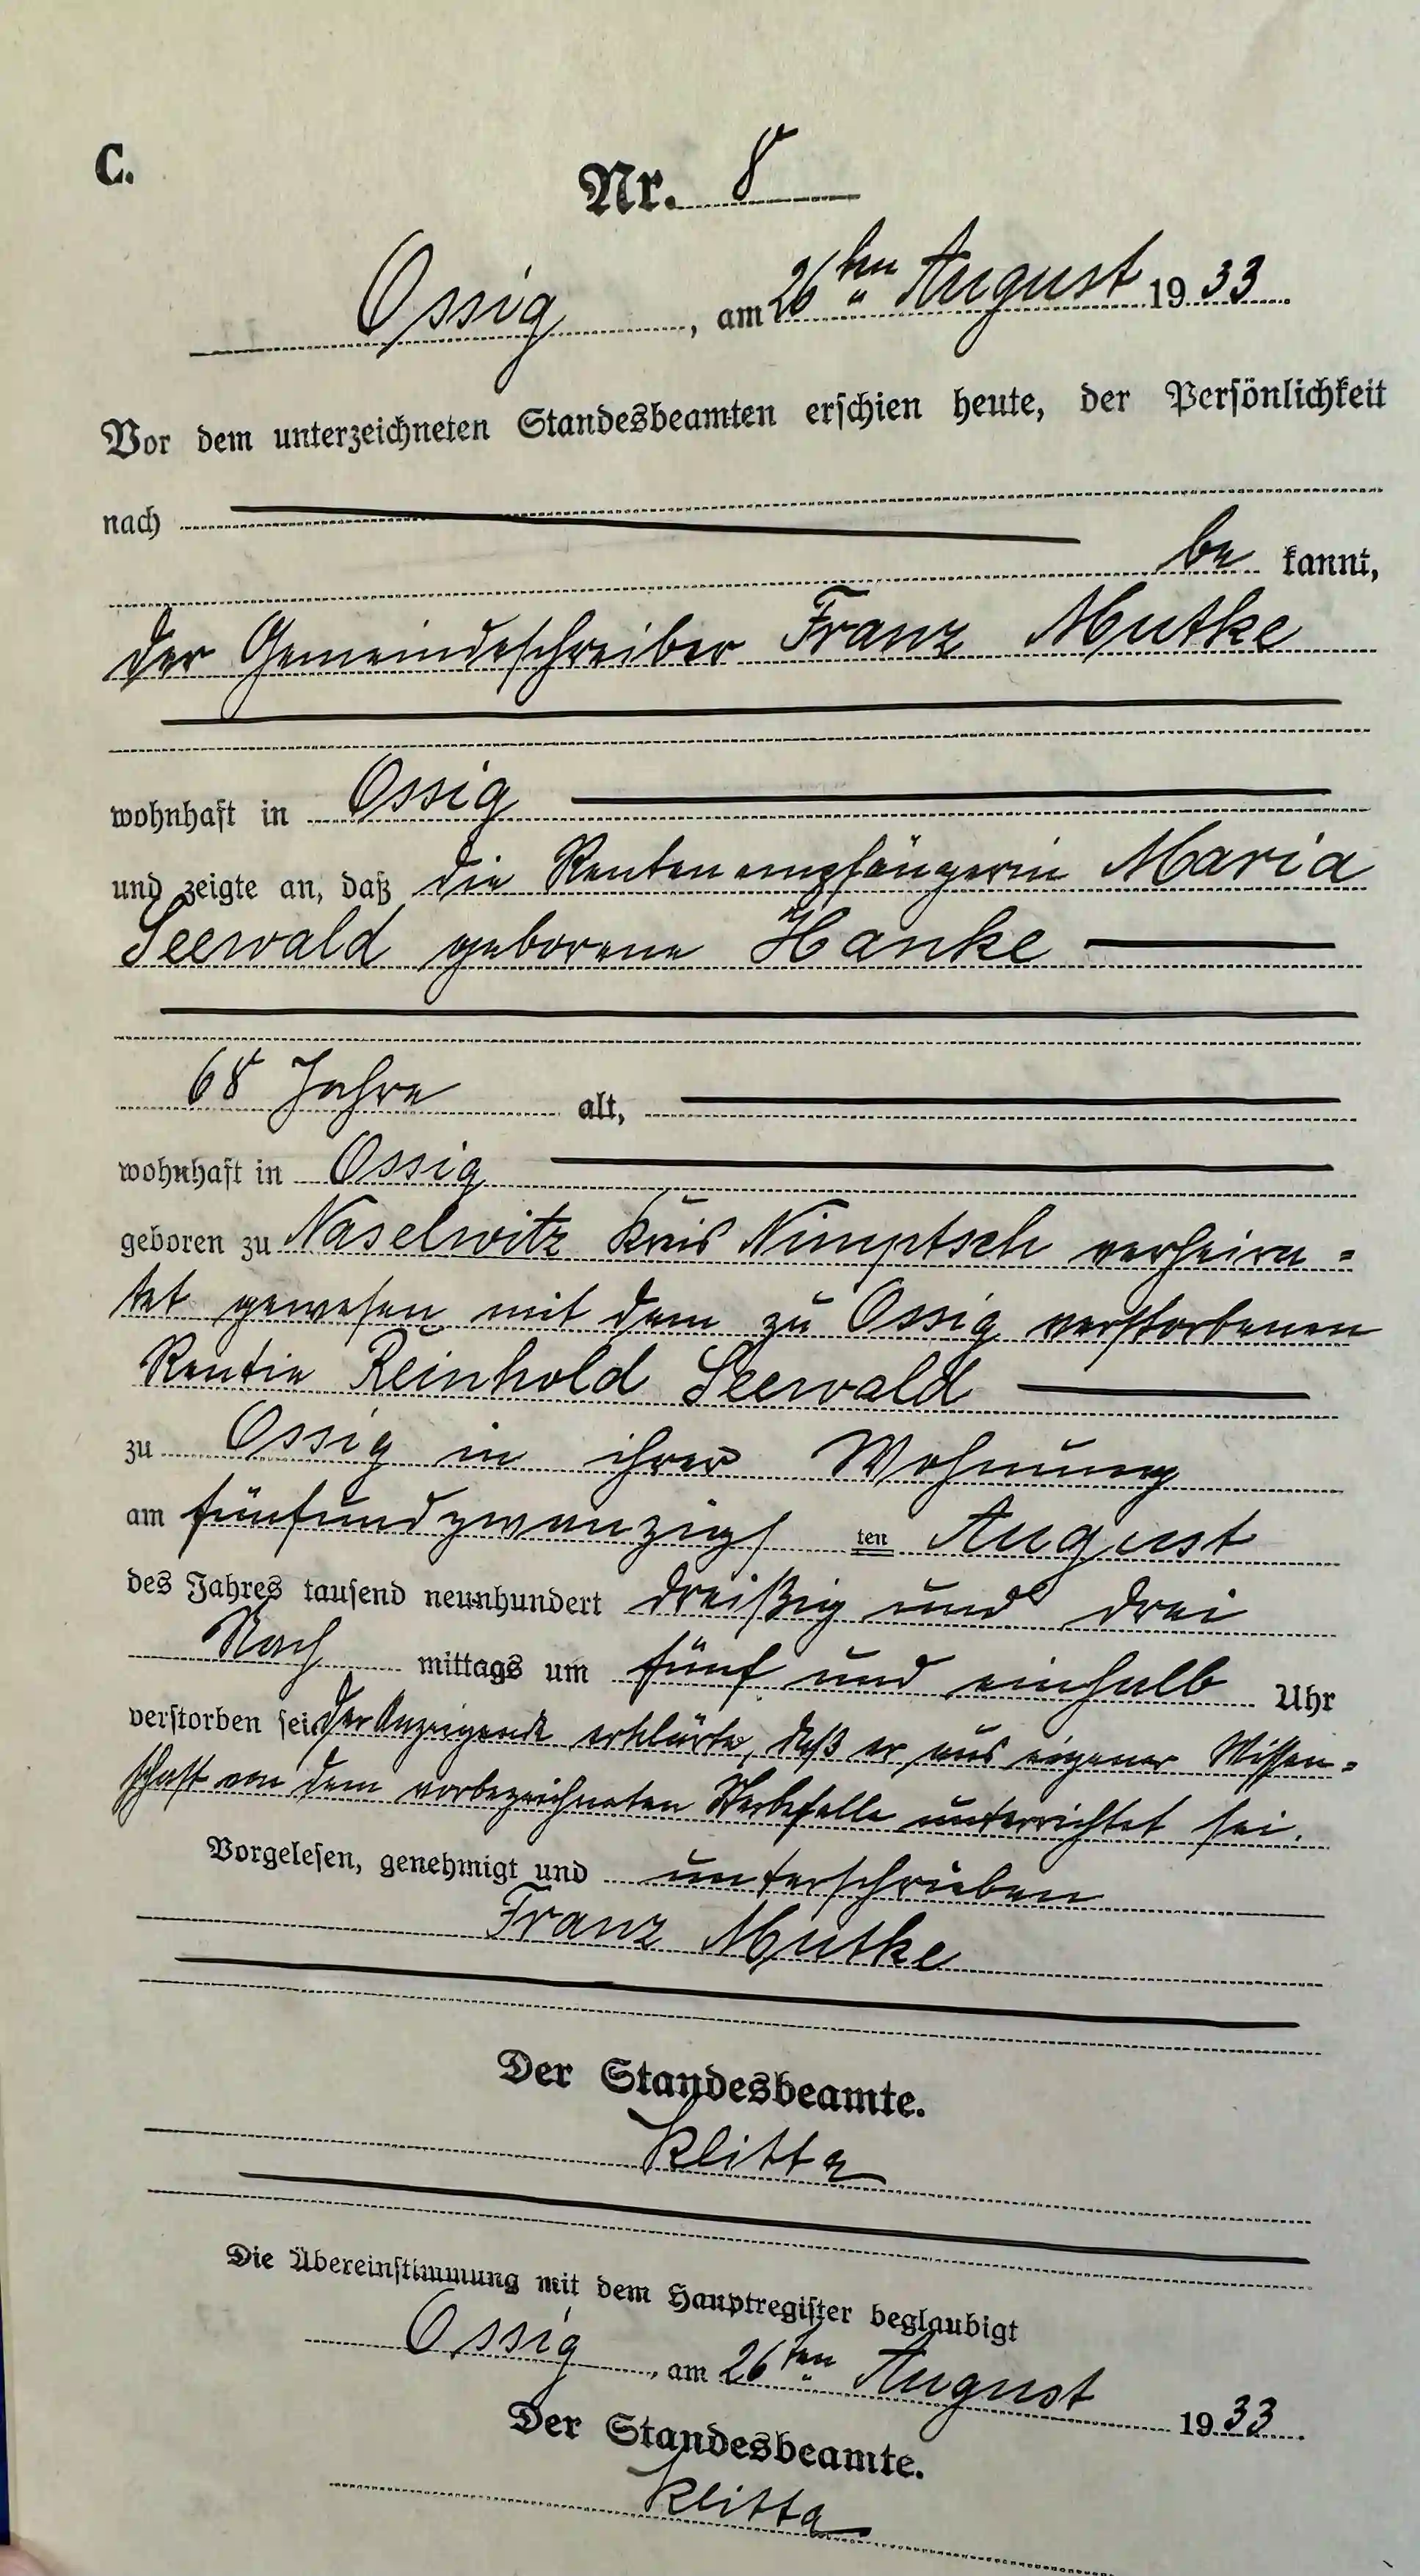 C.
Nr. 8
Ossig, am 26ten August 1933
Vor dem unterzeichneten Standesbeamten erschien heute, der Persönlichkeit
nach
be kannt,
der Gemeindeschreiber Franz Mutke
wohnhaft in Ossig
und zeigte an, daß die Rentenempfängerin Maria
Seewald geborene Hanke
68 Jahre alt,
wohnhaft in Ossig
geboren zu Naselwitz Kreis Nimptsch verheira=
tet gewesen mit dem zu Ossig verstorbenen
Rentier Reinhold Seewald
zu Ossig in ihrer Wohnung
am fünfundzwanzigs ten August
des Jahres tausend neunhundert dreißig und drei
Nach mittags um fünf und einhalb Uhr
verstorben sei. Der Anzeigende erklärte, daß er aus eigener Wissen=
schaft von dem vorbezeichneten Sterbefalle unterrichtet sei.
Vorgelesen, genehmigt und unterschrieben
Franz Mutke
Der Standesbeamte.
Klitta
Die Übereinstimmung mit dem Hauptregister beglaubigt
Ossig, am 26ten August 1933.
Der Standesbeamte.
Klitta